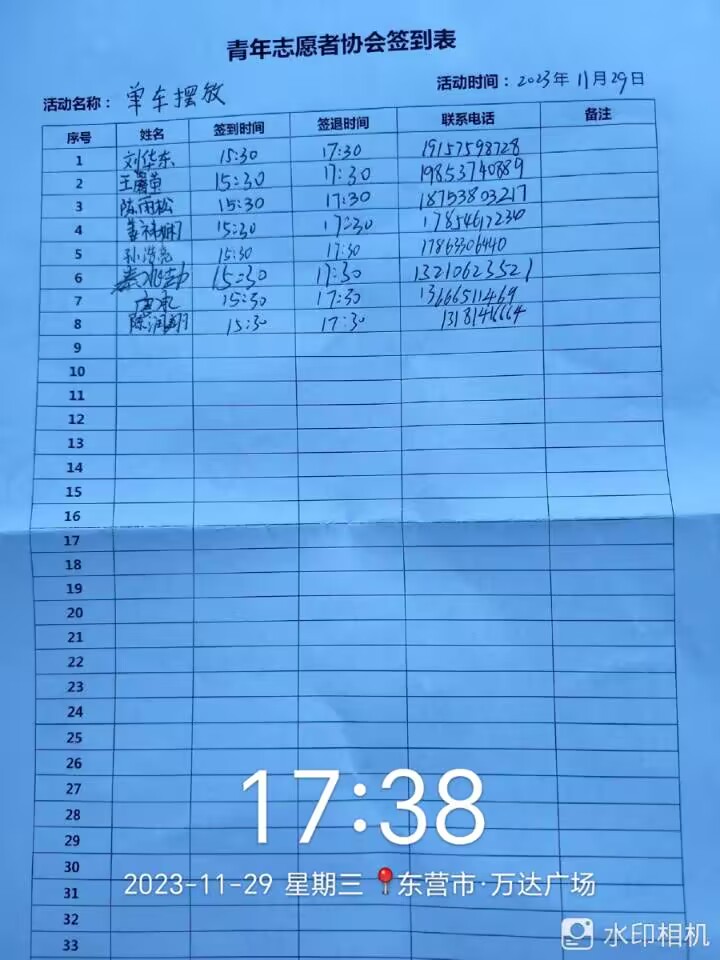 青年志愿者协会签到表
活动名称： 单车摆放 活动时间：2023年11月29日
序号 姓名 签到时间 签退时间 联系电话 备注
1 刘华东 15:30 17:30 19157598728
2 王馨萱 15:30 17:30 19853740889
3 陈雨松 15:30 17:30 18753803217
4 15:30 17:30 17854617230
5 孙浩亮 15:30 17:30 17863306440
6 15:30 17:30 13210623521
7 唐承 15:30 17:30 13666511469
8 陈润翔 15:30 17:30
9
10
11
12
13
14
15
16
17
18
19
20
21
22
23
24
25
26
27
28
29
30
31
32
33
17:38
2023-11-29 星期三 东营市·万达广场
水印相机